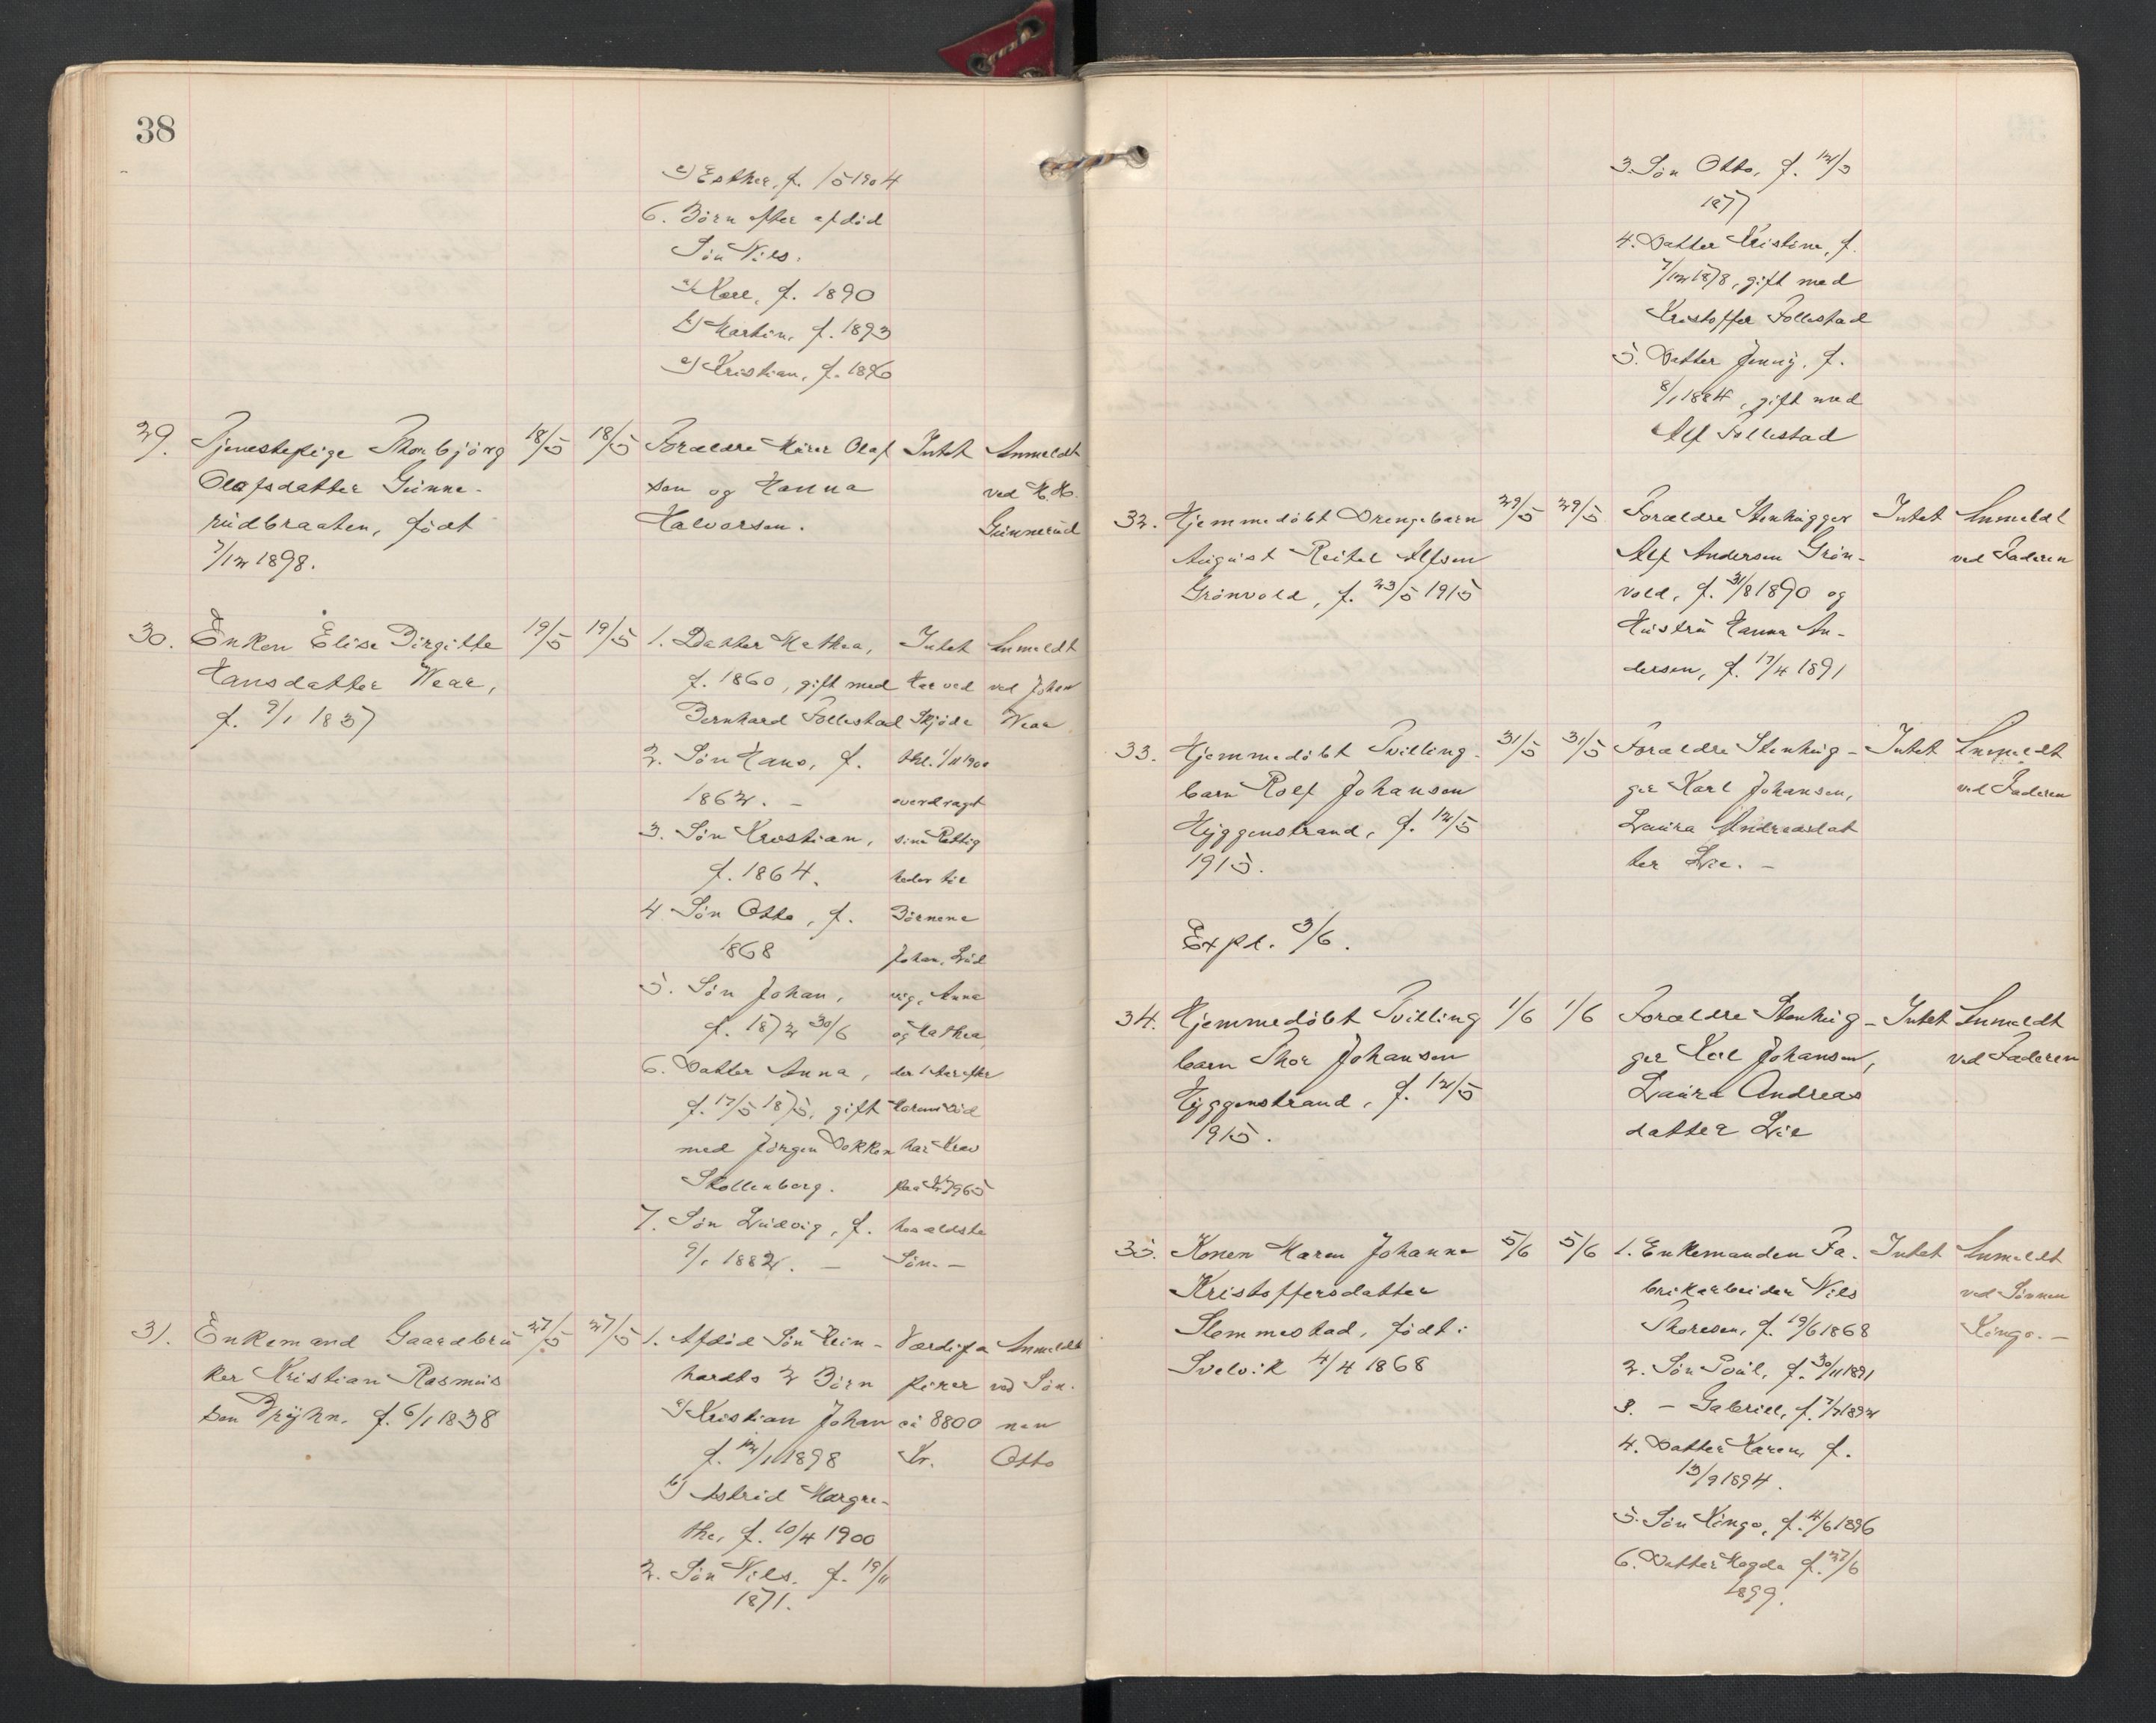 38
c) Esther, f. /5 1904
6. Börn efter afdöd
Sön Nils:
a) Karl, f. 1890
b) Martin, f. 1893
c) Kristian, f. 1896
29. Tjenestepige Thorbjörg 18/5 18/5 Forældre Murer Olaf Intet Anmeldt
Olafsdatter Gunne- sen og Hanna ved H. H.
rudbraaten, födt Halvorsen. Gunnerud
7/12 1898.
30. Enken Elise Birgitte 19/5 19/5 1. Datter Mathea, Intet Anmeldt
Hansdatter Weae, f. 1860, gift med Har ved ved Johan
f. 9/1 1837 Bernhard Follestad Skjöde Weae
2. Sön Hans, f. thl. 1/11 1900
1862. - overdraget
3. Sön Krostian, sine Rettig
f. 1864. heder til
4 Sön Otto, f. Börnene
1868 Johan, Lud
5. Sön Johan, vig, Anna
f. 1872 30/6 og Mathea,
6. Datter Anna,
f. 17/5 1875, gift
med Jörgen Dokken har Krav
Skollenborg.
7. Sön Ludvig, f. hos ældste
9/1 1882. - Sön. -
31. Enkemand Gaardbru 27/5 27/5 1. Afdöd Sön Rein- Værdipa Anmeldt
ker Kristian Rasmus hardts 2 Börn pirer ved Sön-
sen Bryhn, f. 6/1 1838 a) Kristian Johan ca 8800 nen
f. 12/11 1898 Kr. Otto
b) Astrid Margre-
the, f. 10/4 1900
2. Sön Nils, f. 19/11
1871.
3. Sön Otto, f. 12/3
1877
4. Datter Kristine, f.
7/12 1878, gift med
Kristoffer Follestad
5. Datter Jenny, f.
8/1 1884, gift med
Alf Follestad
32. Hjemmedöbt Drengebarn 29/5 29/5 Forældre Stenhugger Intet Anmeldt
August Reitel Alfsen Alf Andersen Grön- ved Faderen
Grönvold, f. 23/5 1915 vold, f. 31/8 1890 og
Hustru Hanna An-
dersen, f. 17/4 1891
33. Hjemmedöbt Tvilling- 31/5 31/5 Forældre Stenhug- Intet Anmeldt
barn Rolf Johansen ger Karl Johansen, ved Faderen
Hyggenstrand, f. 12/5 Laura Andreasdat
1915. ter Lie. -
Expl. 3/6.
34. Hjemmedöbt Tvilling 1/6 1/6 Forældre Stenhug- Intet Anmeldt
barn Thor Johansen ger Karl Johansen, ved Faderen
Hyggenstrand, f. 12/5 Laura Andreas
1915. datter Lie
35. Konen Maren Johanne 5/6 5/6 1. Enkemanden Fa- Intet Anmeldt
Kristoffersdatter brikarbeider Nils ved Sönnen
Slemmestad, födt i Thoresen, f. 19/6 1868 Kingo. -
Svelvik 4/4 1868 2. Sön Poul, f. 30/11 1891
3. - Gabriel, f. 7/7 1892
4. Datter Karen, f.
13/9 1894.
5. Sön Kingo, f. 4/6 1896
6. Datter Magda f. 27/6
1899.